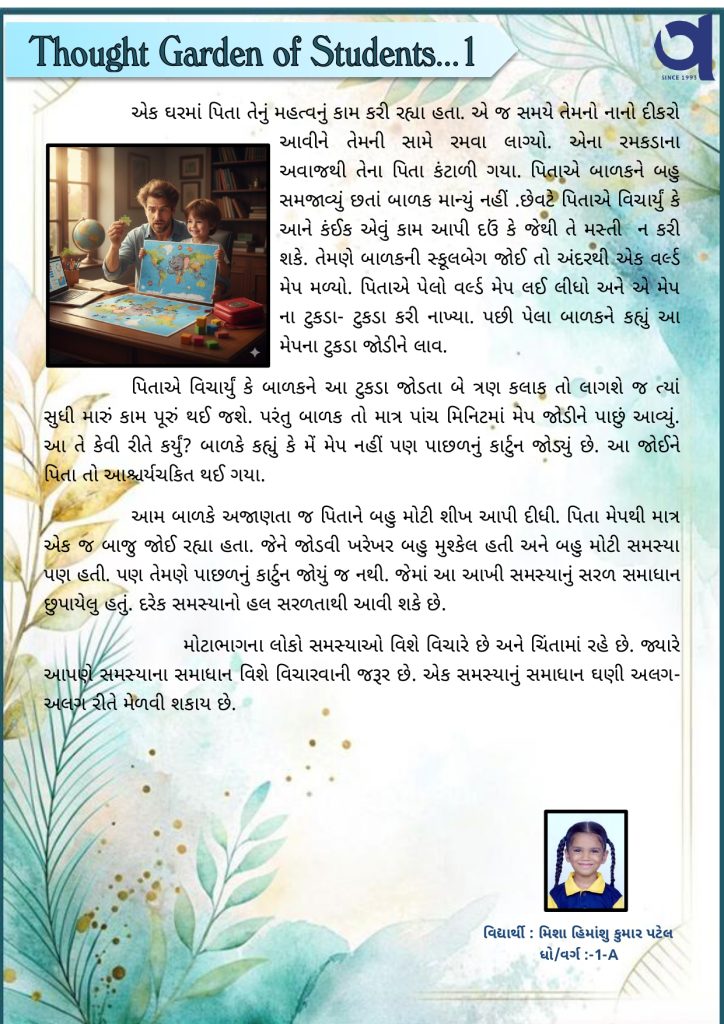 Thought Garden of Students...1
SINCE 1993
એક ઘરમાં પિતા તેનું મહત્વનું કામ કરી રહ્યા હતા. એ જ સમયે તેમનો નાનો દીકરો
આવીને તેમની સામે રમવા લાગ્યો. એના રમકડાના
અવાજથી તેના પિતા કંટાળી ગયા. પિતાએ બાળકને બહુ
સમજાવ્યું છતાં બાળક માન્યું નહીં .છેવટે પિતાએ વિચાર્યું કે
આને કંઈક એવું કામ આપી દઉં કે જેથી તે મસ્તી ન કરી
શકે. તેમણે બાળકની સ્કૂલબેગ જોઈ તો અંદરથી એક વર્લ્ડ
મેપ મળ્યો. પિતાએ પેલો વર્લ્ડ મેપ લઈ લીધો અને એ મેપ
ના ટુકડા- ટુકડા કરી નાખ્યા. પછી પેલા બાળકને કહ્યું આ
મેપના ટુકડા જોડીને લાવ.
પિતાએ વિચાર્યું કે બાળકને આ ટુકડા જોડતા બે ત્રણ કલાક તો લાગશે જ ત્યાં
સુધી મારું કામ પૂરું થઈ જશે. પરંતુ બાળક તો માત્ર પાંચ મિનિટમાં મેપ જોડીને પાછું આવ્યું.
આ તે કેવી રીતે કર્યું? બાળકે કહ્યું કે મેં મેપ નહીં પણ પાછળનું કાર્ટુન જોડ્યું છે. આ જોઈને
પિતા તો આશ્ચર્યચકિત થઈ ગયા.
આમ બાળકે અજાણતા જ પિતાને બહુ મોટી શીખ આપી દીધી. પિતા મેપથી માત્ર
એક જ બાજુ જોઈ રહ્યા હતા. જેને જોડવી ખરેખર બહુ મુશ્કેલ હતી અને બહુ મોટી સમસ્યા
પણ હતી. પણ તેમણે પાછળનું કાર્ટુન જોયું જ નથી. જેમાં આ આખી સમસ્યાનું સરળ સમાધાન
છુપાયેલુ હતું. દરેક સમસ્યાનો હલ સરળતાથી આવી શકે છે.
મોટાભાગના લોકો સમસ્યાઓ વિશે વિચારે છે અને ચિંતામાં રહે છે. જ્યારે
આપણે સમસ્યાના સમાધાન વિશે વિચારવાની જરૂર છે. એક સમસ્યાનું સમાધાન ઘણી અલગ-
અલગ રીતે મેળવી શકાય છે.
વિદ્યાર્થી : મિશા હિમાંશુ કુમાર પટેલ
ધો/વર્ગ :-1-A